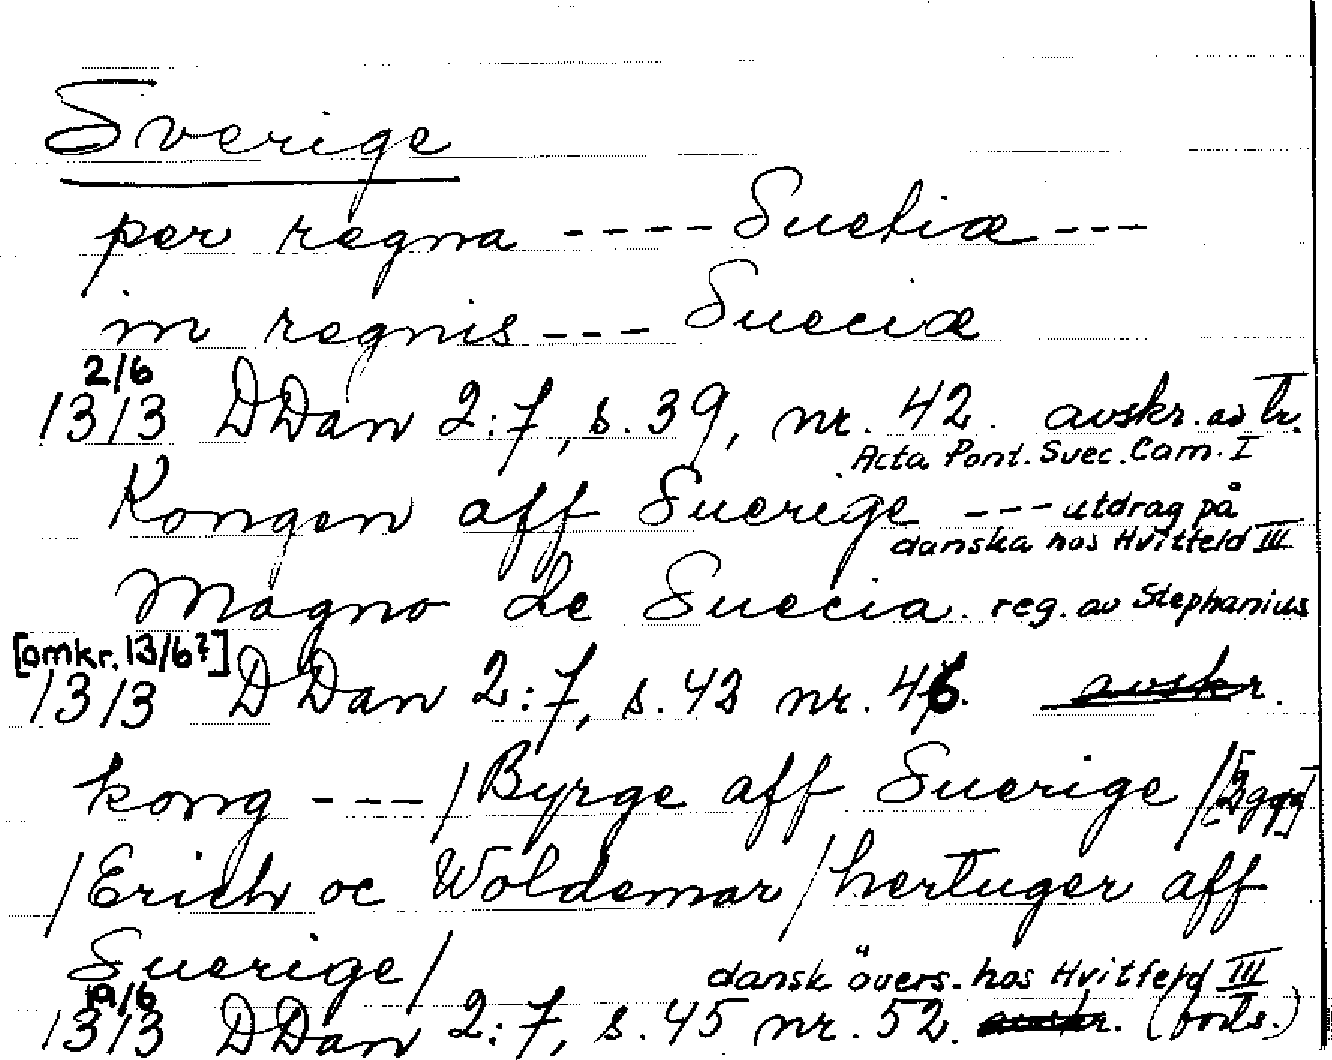 Sverige
per regna ---- Suetiæ ---
in regnis --- Sueciæ
2/6
1313 DDan 2:7, s. 39, nr. 42. avskr. av tr.
Acta Pont. Svec. Cam. I
Kongen aff Suerige --- utdrag på
danska hos Hvitfeld III
Magno de Suecia. reg. av Stephanius
[omkr. 13/6?]
1313 DDan 2:7, s. 43 nr. 46. avskr.
kong --- / Byrge aff Suerige /
/ Erich oc Woldemar / hertuger aff
Suerige /
dansk övers. hos Hvitfeld III
1313 DDan 2:7, s. 45 nr. 52. avskr. (forts.)